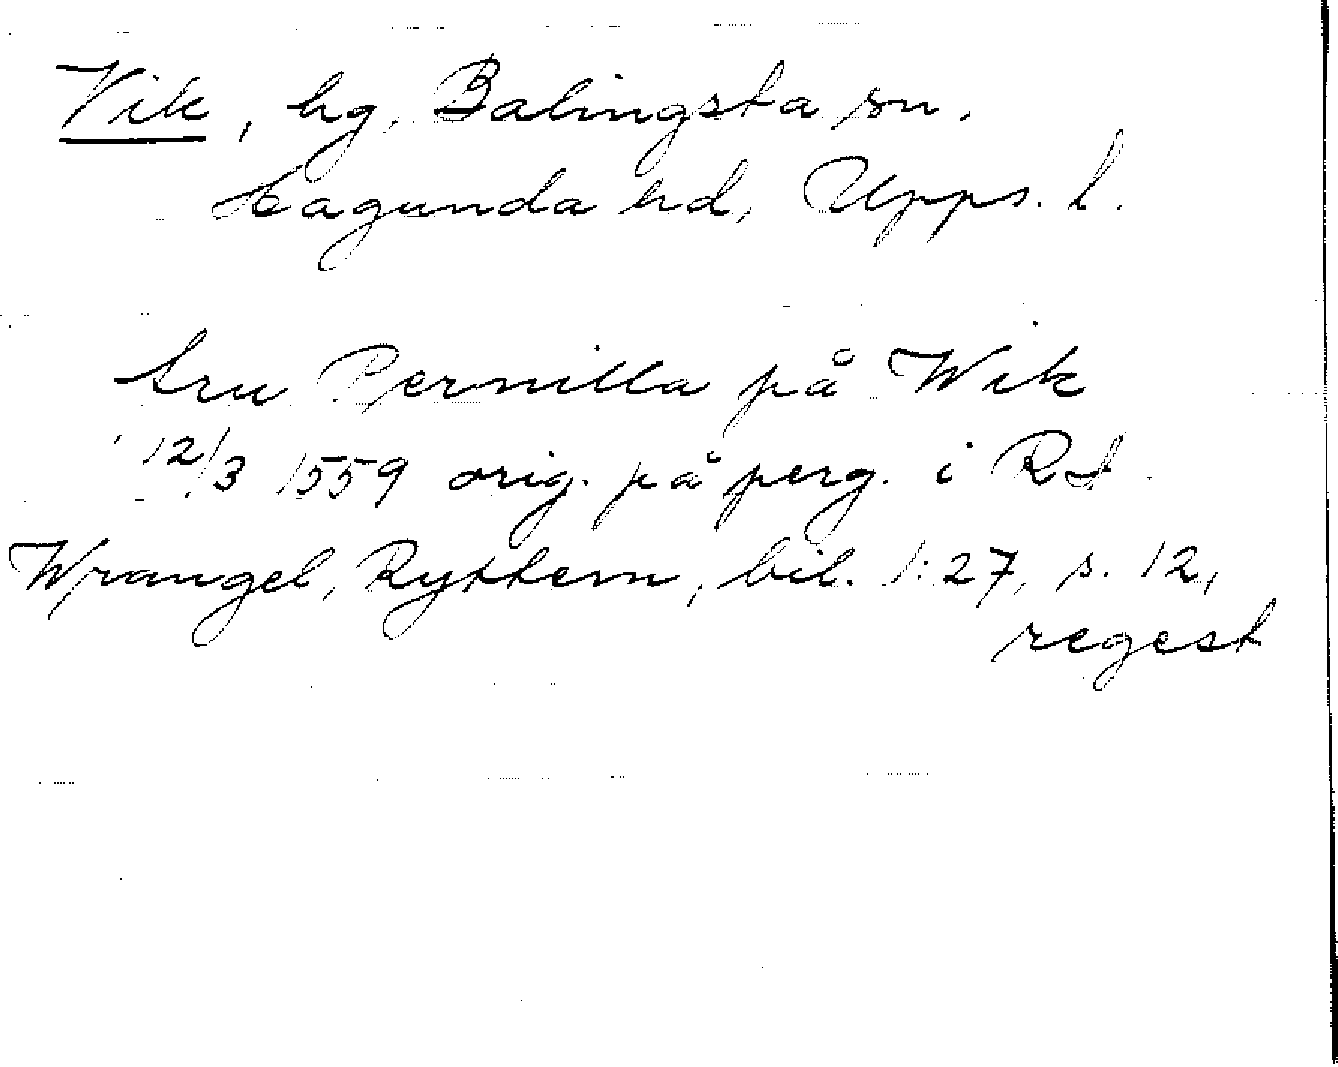 Vik, hg, Balingsta sn.
Hagunda hd, Upps. l.
hru Pernilla på Wik
12/3 1559 orig. på perg. i RA
Wrangel, Ryttern, bil. 1:27, s. 12,
regest